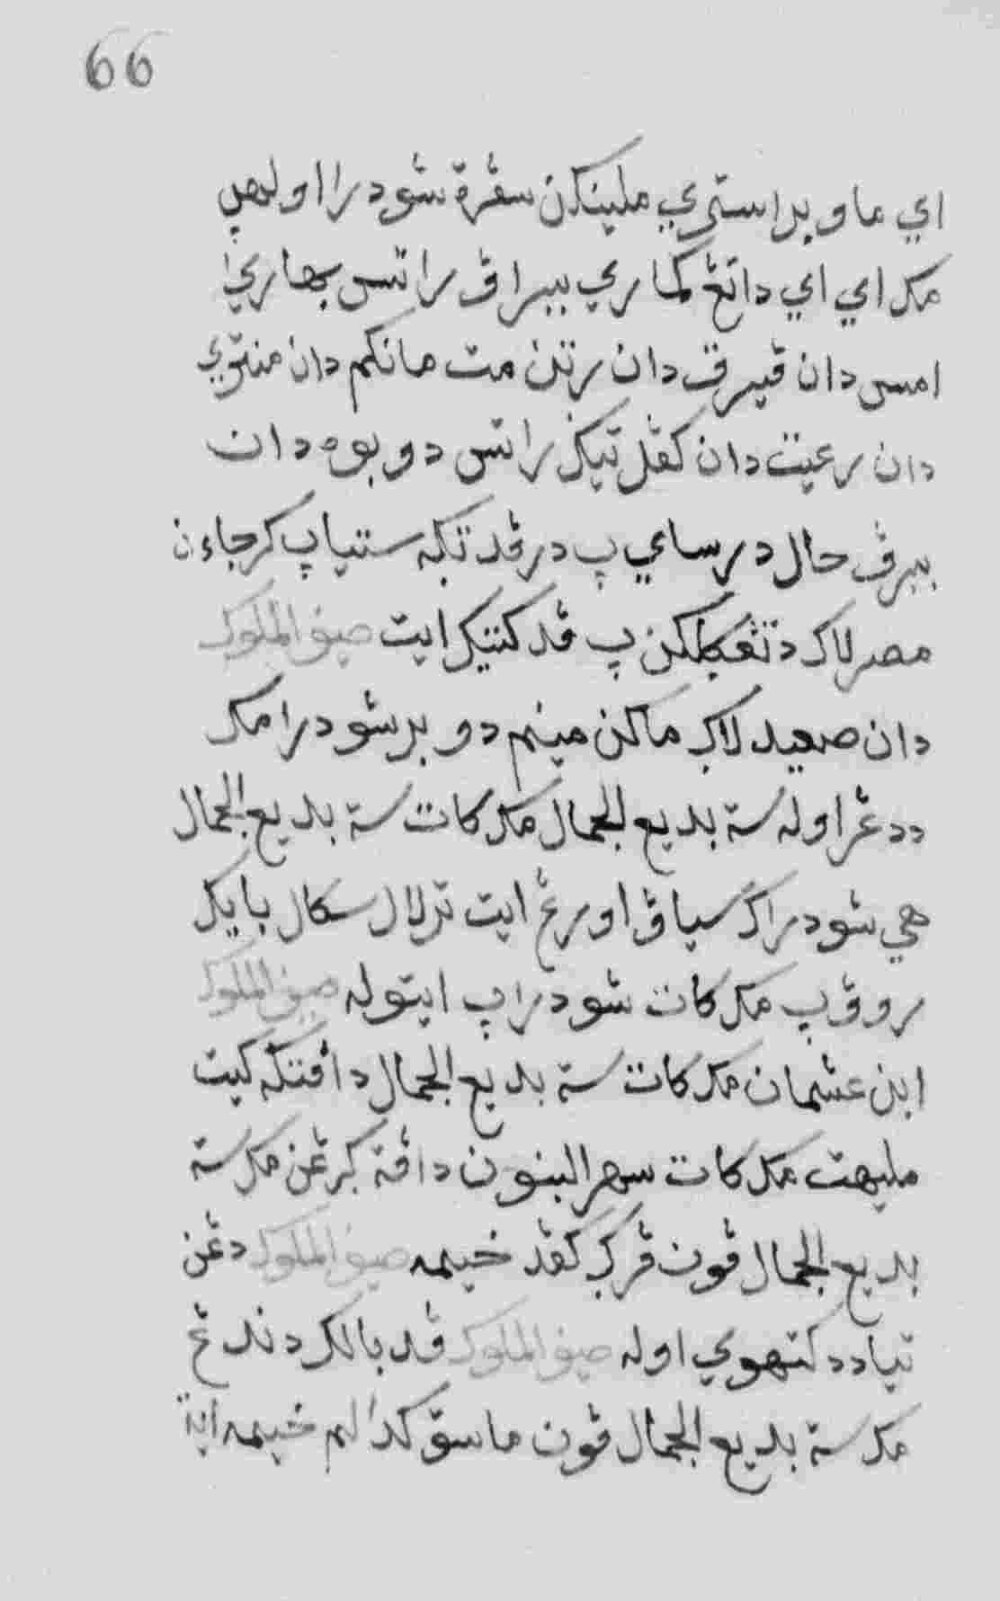 66
اي ماو براستري ملينكن سڤرة شودرا اوليهڽ
مك اي اي داتڠ كماري ببراڤ راتس بهاري
امس دان ڤيرق دان رتن مت مانكم دان منتري
دان رعيت دان كڤل تيݢ راتس دوبوه دان
ببرڤ حال درساي ڽ درڤد تتكه ستياڤ كرجاءن
مصر لاݢ دتڠݢلكن ڽ ڤد كتيك ايت صيف الملوك
دان صعيد لاݢ ماكن مينم دو برشودرا مك
ددڠر اوله ستي بديع الجمال مك كات ستي بديع الجمال
هي شودراك سياڤ اورڠ ايت ترلال سكال بايك
روڤ ڽ مك كات شودراڽ ايتوله صيف الملوك
ابن عشمان مك كات ستي بديع الجمال داڤتكه كيت
مليهت مك كات سهر البنون داڤة كرڠن مك ستي
بديع الجمال ڤون ڤرݢ كڤد خيمه صيف الملوك دڠن
تياد دكتهوي اوله صيف الملوك ڤد بالك دندڠ
مك ستي بديع الجمال ڤون ماسق كدالم خيمه ايت